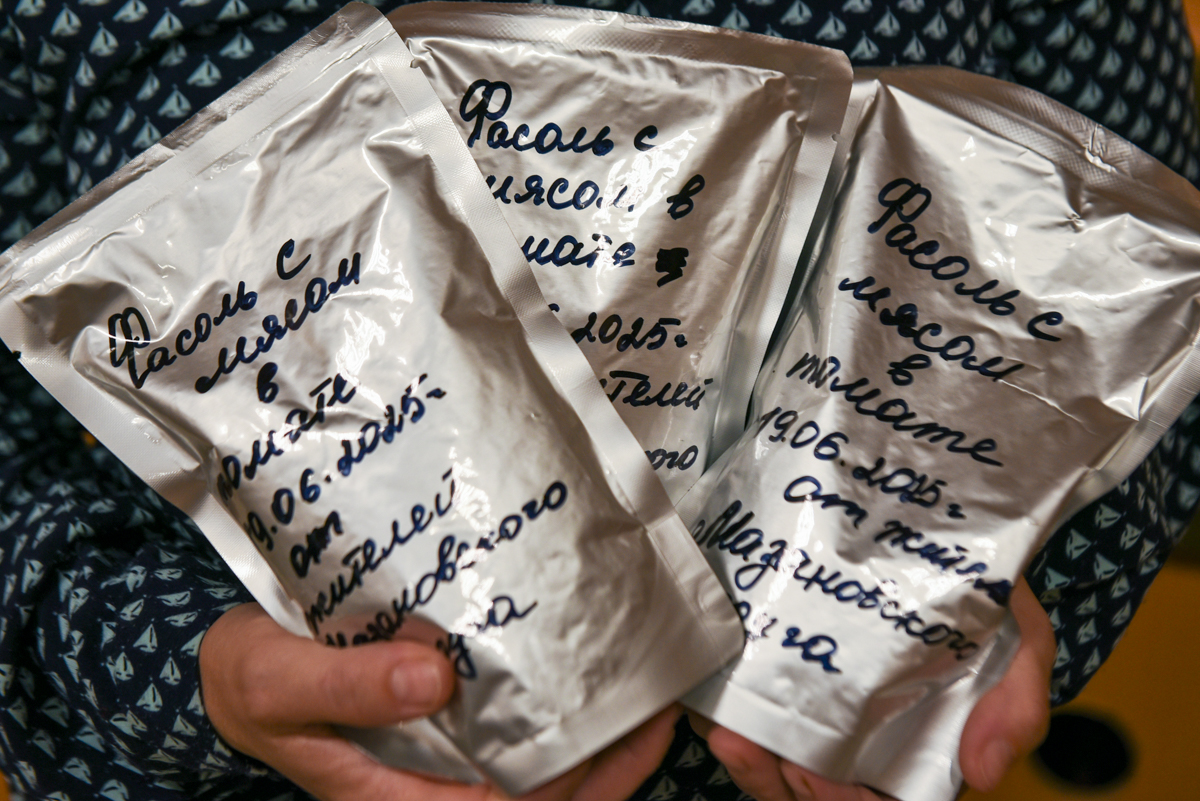 Фасоль с
мясом
в
томате
19.06.2025г
от
жителей
Мазановского
Фасоль с
мясом в
мате
2025г.
телей
ого
Фасоль с
мясом
в
томате
19.06.2025г.
от жителей
Мазановского